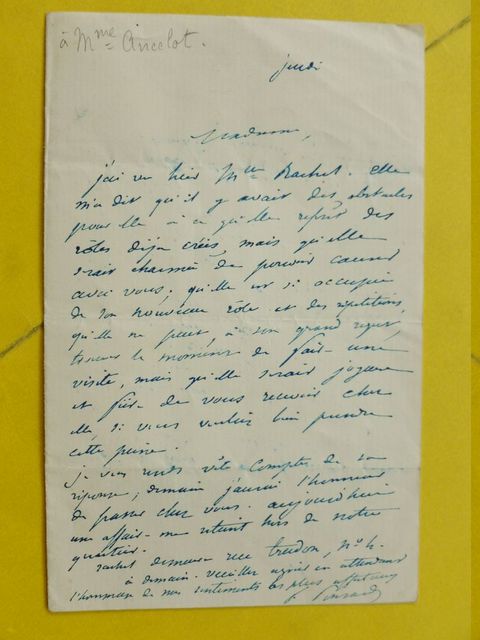 à Mme Ancelot.
jeudi
Madame,
j'ai vu hier Mlle Rachel. elle
m'a dit qu'il y avait des obstacles
pour elle à ce qu'elle reprit des
rôles déjà créés, mais qu'elle
serait charmée de pouvoir causer
avec vous; qu'elle est si occupée
de son nouveau rôle et des répétitions,
qu'elle ne peut, à son grand regret,
trouver le moment de faire une
visite, mais qu'elle serait joyeuse
et fière de vous recevoir chez
elle, si vous vouliez bien prendre
cette peine.
je vous rends vite compte de sa
réponse; demain j'aurai l'honneur
de passer chez vous. aujourd'hui
une affaire me retient hors de notre
quartier.
rachel demeure rue trudon, no 4.
à demain. veuillez agréer en attendant
l'hommage de mes sentiments les plus affectueux
Ponsard